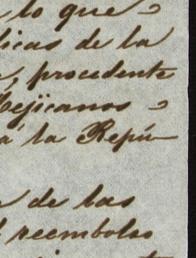 lo que
licas de la
procedente
Mejicanos
á la Repú-
de las
reembolso